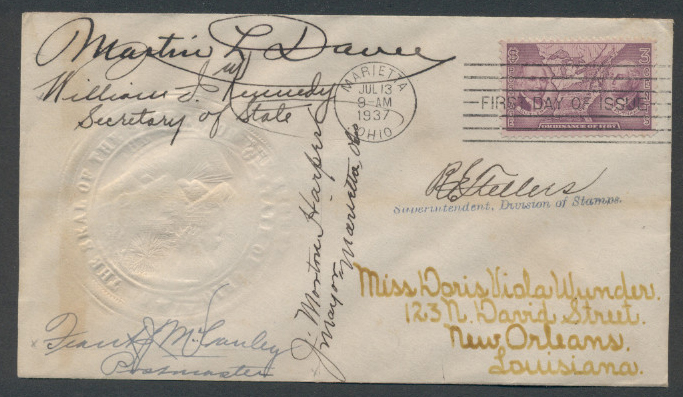 Martin L Davey
William J. Kennedy
Secretary of State
MARIETTA
JUL 13
9-AM
1937
OHIO
FIRST DAY OF ISSUE
3
3
ORDINANCE OF 1787
R E Fellers
Superintendent, Division of Stamps.
J. Morton Harper
Mayor, Marietta, Ohio
THE SEAL OF THE
OF
Miss Doris Viola Wunder.
123 N. David Street.
New Orleans.
Louisiana.
Frank J McCauley
Postmaster